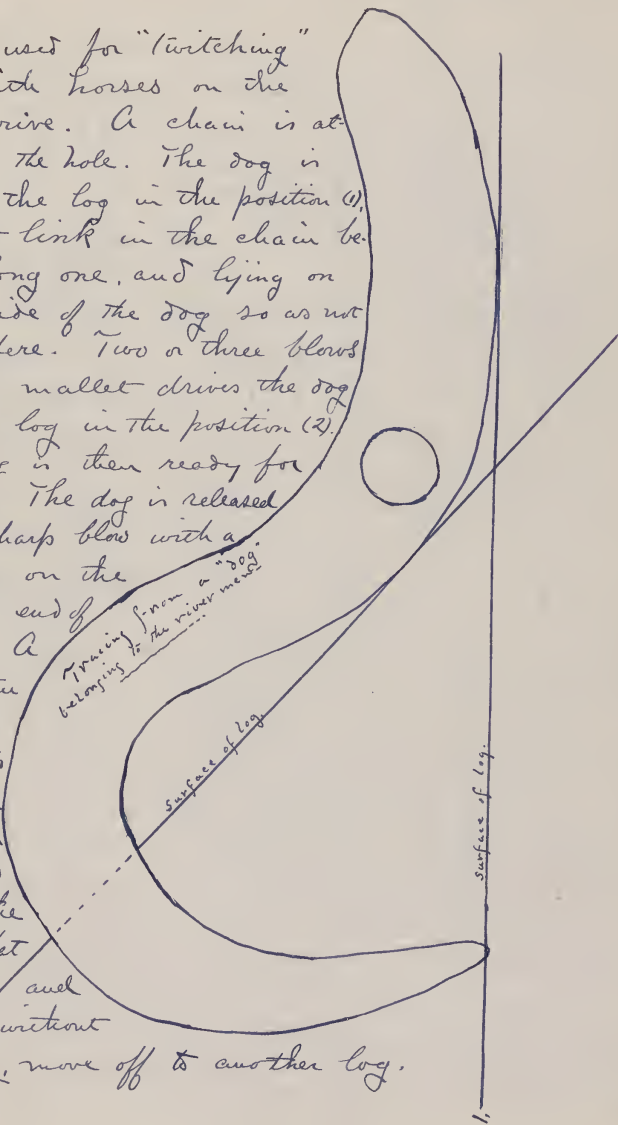 used for "twitching"
ith horses on the
rive. A chain is at-
the hole. The dog is
the log in the position (1),
link in the chain be-
ong one, and lying on
ide of the dog so as not
fere. Two or three blows
mallet drives the dog
log in the position (2).
is then ready for
The dog is released
harp blow with a
on the
end of
A
Tracing from a "dog"
belonging to the river men
surface of log
surface of log.
and
without
move off to another log.
1.